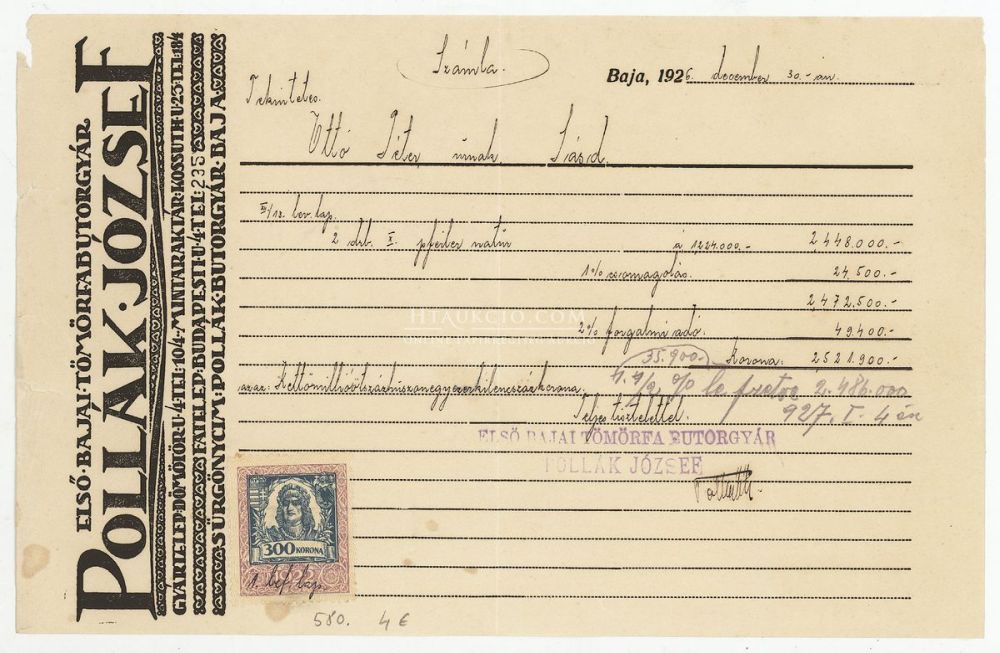 ELSŐ·BAJAI·TÖMÖRFABÚTORGYÁR
POLLÁK·JÓZSEF
GYÁRTELEP:DÖMÖTÖR U·4·TEL:10/4·MINTARAKTÁR·KOSSUTH·U·23·TEL:184
FATELEP·BUDAPESTI·U·4·TEL:235
SÜRGÖNYCIM:POLLÁK·BUTORGYÁR·BAJA
Számla.
Baja, 1926. december 30.-án
Tekintetes
Ottó Péter úrnak Sásd.
lev. lap.
2 drb. I. pfeiler natúr á 1224.000.- 2448.000.-
1% csomagolás. 24.500.-
2472.500.-
HTAUKCIO.COM
2% forgalmi adó. 49.400.-
35.900.- Korona: 2521.900.-
azaz: Kettőmillióötszázhúszonegyezerkilencszázkorona. % le fizetve 2.486.000
Teljes tisztelettel. 927. I. 4 én
ELSŐ BAJAI TÖMÖRFA BUTORGYÁR
POLLÁK JÓZSEF
300 KORONA
580. 4 €